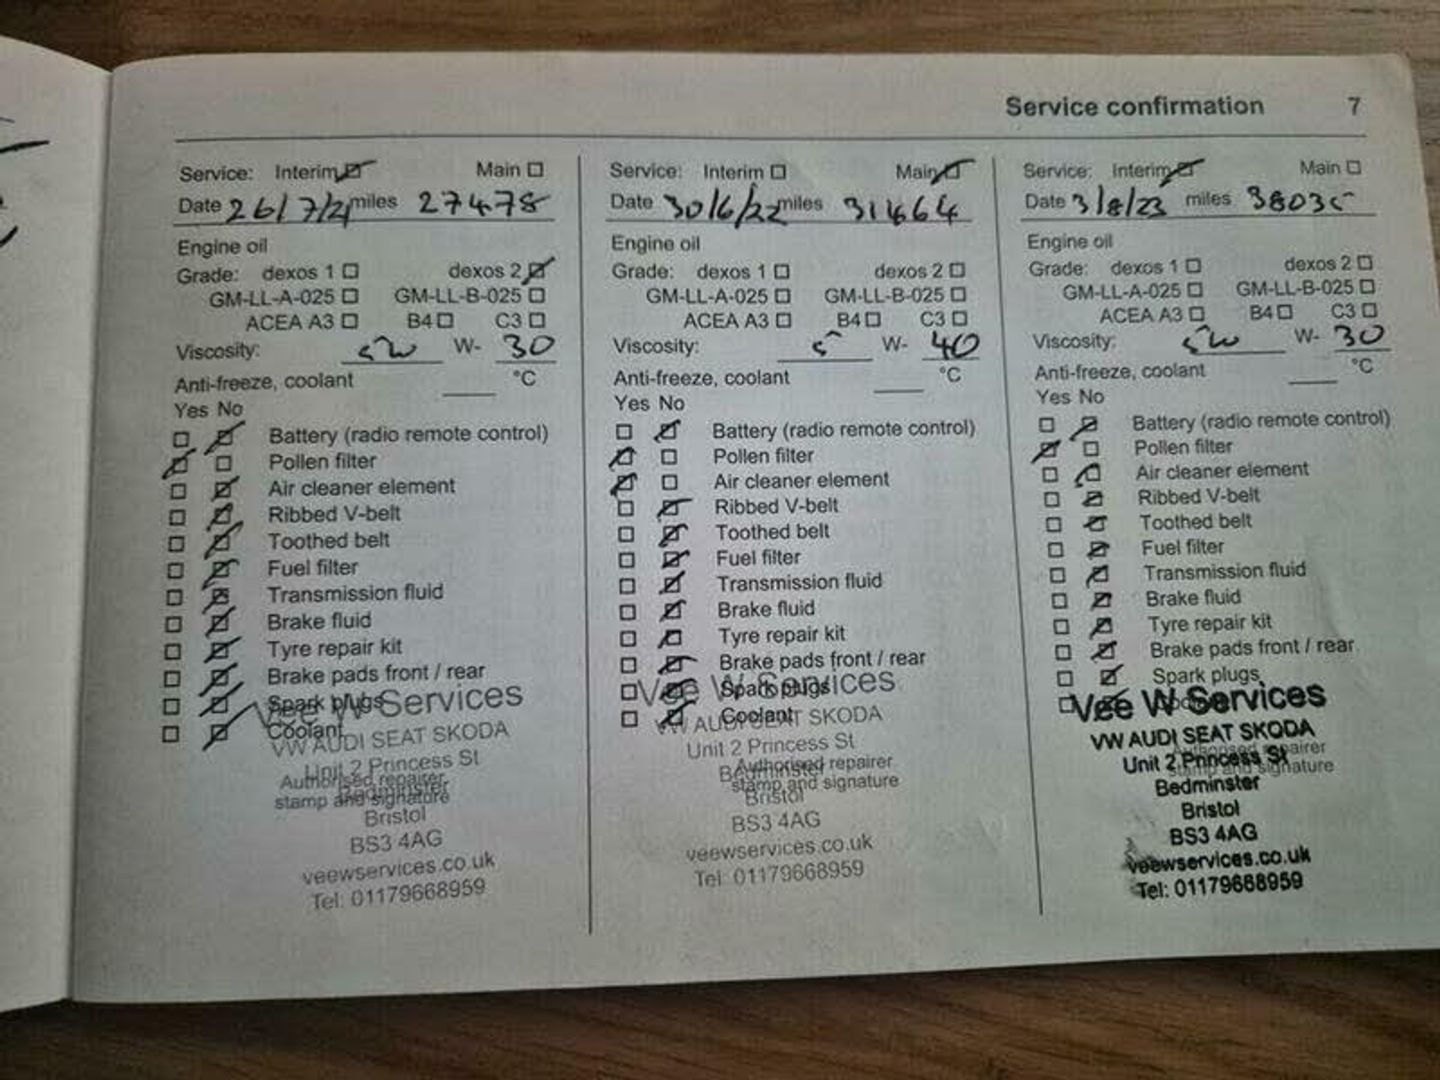 Service confirmation 7
Service: Interim Main
Date 26/7/21 miles 27478
Engine oil
Grade: dexos 1 dexos 2
GM-LL-A-025 GM-LL-B-025
ACEA A3 B4 C3
Viscosity: 5W W- 30
Anti-freeze, coolant °C
Yes No
Battery (radio remote control)
Pollen filter
Air cleaner element
Ribbed V-belt
Toothed belt
Fuel filter
Transmission fluid
Brake fluid
Tyre repair kit
Brake pads front / rear
Spark plugs
Coolant
Vee W Services
VW AUDI SEAT SKODA
Unit 2 Princess St
Authorised repairer
Bedminster
stamp and signature
Bristol
BS3 4AG
veewservices.co.uk
Tel: 01179668959
Service: Interim Main
Date 30/6/22 miles 31464
Engine oil
Grade: dexos 1 dexos 2
GM-LL-A-025 GM-LL-B-025
ACEA A3 B4 C3
Viscosity: 5 W- 40
Anti-freeze, coolant °C
Yes No
Battery (radio remote control)
Pollen filter
Air cleaner element
Ribbed V-belt
Toothed belt
Fuel filter
Transmission fluid
Brake fluid
Tyre repair kit
Brake pads front / rear
Spark plugs
Vee W Services
Coolant
VW AUDI SEAT SKODA
Unit 2 Princess St
Authorised repairer
Bedminster
stamp and signature
Bristol
BS3 4AG
veewservices.co.uk
Tel: 01179668959
Service: Interim Main
Date 3/8/23 miles 38035
Engine oil
Grade: dexos 1 dexos 2
GM-LL-A-025 GM-LL-B-025
ACEA A3 B4 C3
Viscosity: 5W W- 30
Anti-freeze, coolant °C
Yes No
Battery (radio remote control)
Pollen filter
Air cleaner element
Ribbed V-belt
Toothed belt
Fuel filter
Transmission fluid
Brake fluid
Tyre repair kit
Brake pads front / rear
Spark plugs
Vee W Services
VW AUDI SEAT SKODA
Authorised repairer
Unit 2 Princess St
stamp and signature
Bedminster
Bristol
BS3 4AG
veewservices.co.uk
Tel: 01179668959